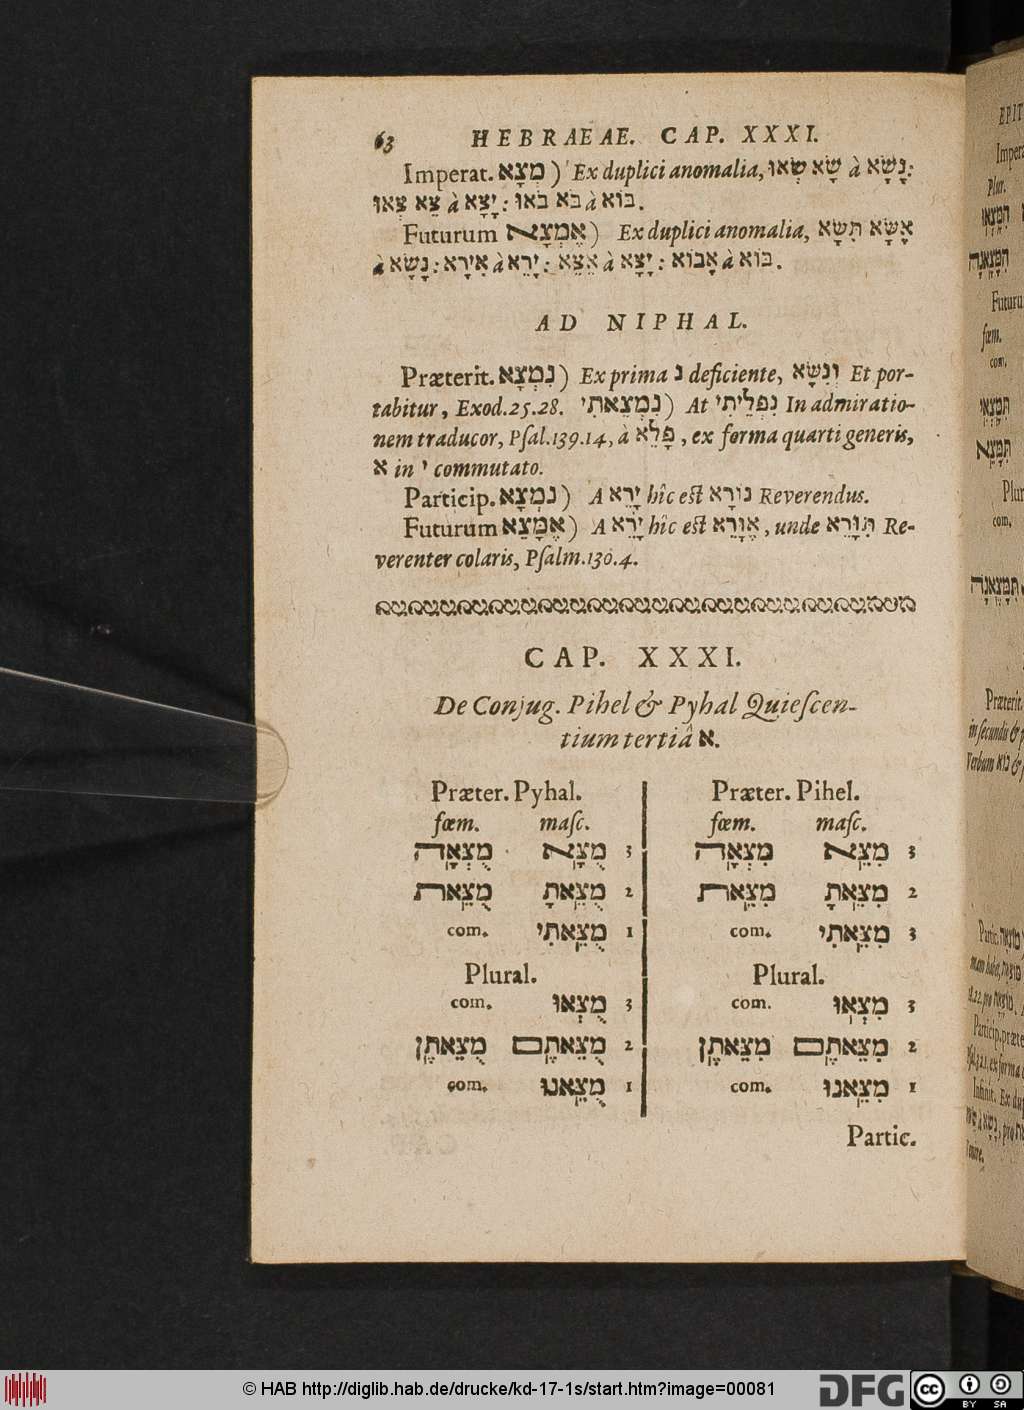 63 HEBRAEAE. CAP. XXXI.
Imperat. מְצָא ) Ex duplici anomalia, שָׂא שְׂאוּ à נָשָׂא:
צֵא צְאוּ à יָצָא: בֹּא בֹּאוּ à בּוֹא.
Futurum אֶמְצָא ) Ex duplici anomalia, אֶשָּׂא תִּשָּׂא
à נָשָׂא: אִירָא à יָרֵא: אֵצֵא à יָצָא: אָבוֹא à בּוֹא.
AD NIPHAL.
Præterit. נִמְצָא ) Ex prima נ deficiente, וְנִשָּׂא Et por-
tabitur, Exod.25.28. נִמְצֵאתִי ) At נִפְלֵיתִי In admiratio-
nem traducor, Pſal.139.14, à פָּלֵא, ex forma quarti generis,
א in י commutato.
Particip. נִמְצָא ) A יָרֵא hîc est נוֹרָא Reverendus.
Futurum אֶמָּצֵא ) A יָרֵא hîc est אִוָּרֵא, unde תִּוָּרֵא Re-
verenter colaris, Pſalm.130.4.
CAP. XXXI.
De Conjug. Pihel & Pyhal Quieſcen-
tium tertiâ א.
Præter. Pyhal. Præter. Pihel.
fœm. maſc. fœm. maſc.
מֻצְּאָה מֻצָּא 3 מִצְּאָה מִצֵּא 3
מֻצֵּאת מֻצֵּאתָ 2 מִצֵּאת מִצֵּאתָ 2
com. מֻצֵּאתִי 1 com. מִצֵּאתִי 3
Plural. Plural.
com. מֻצְּאוּ 3 com. מִצְּאוּ 3
מֻצֵּאתֶן מֻצֵּאתֶם 2 מִצֵּאתֶן מִצֵּאתֶם 2
com. מֻצֵּאנוּ 1 com. מִצֵּאנוּ 1
Partic.
© HAB http://diglib.hab.de/drucke/kd-17-1s/start.htm?image=00081
DFG
cc BY SA